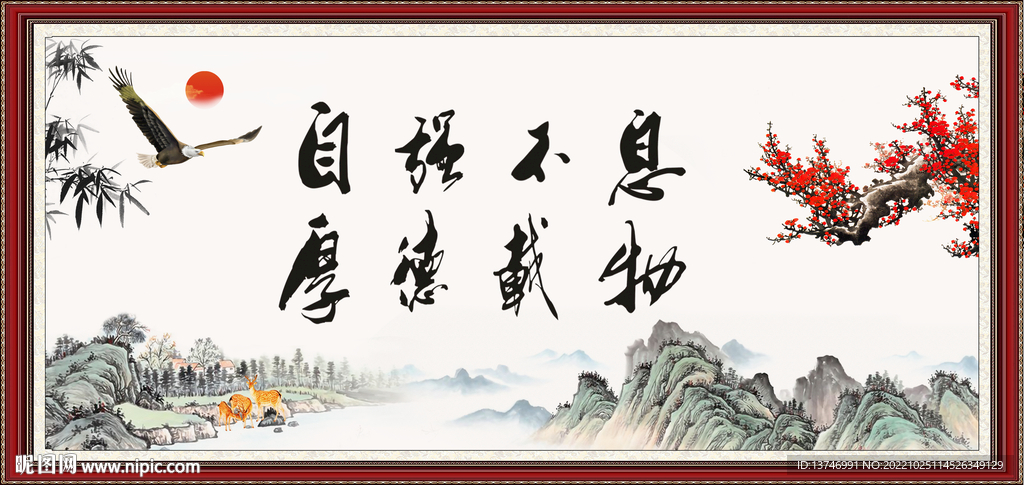 自强不息
厚德载物
昵图网 www.nipic.com
ID:13746991 NO:20221025114526349129